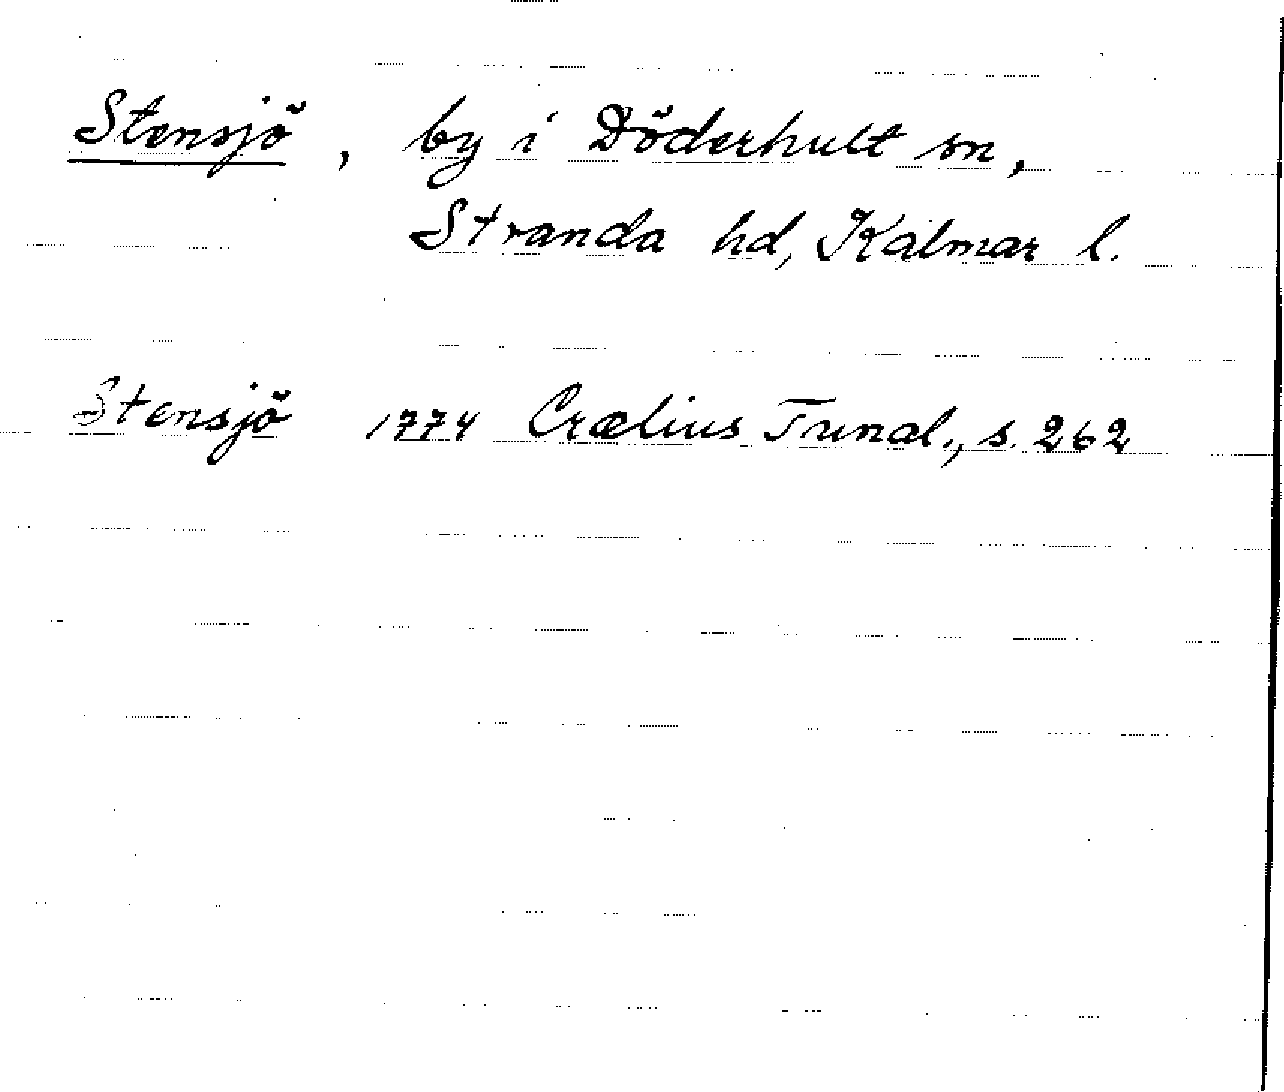 Stensjö, by i Döderhult sn,
Stranda hd, Kalmar l.
Stensjö 1774 Crælius Tunal., s. 262